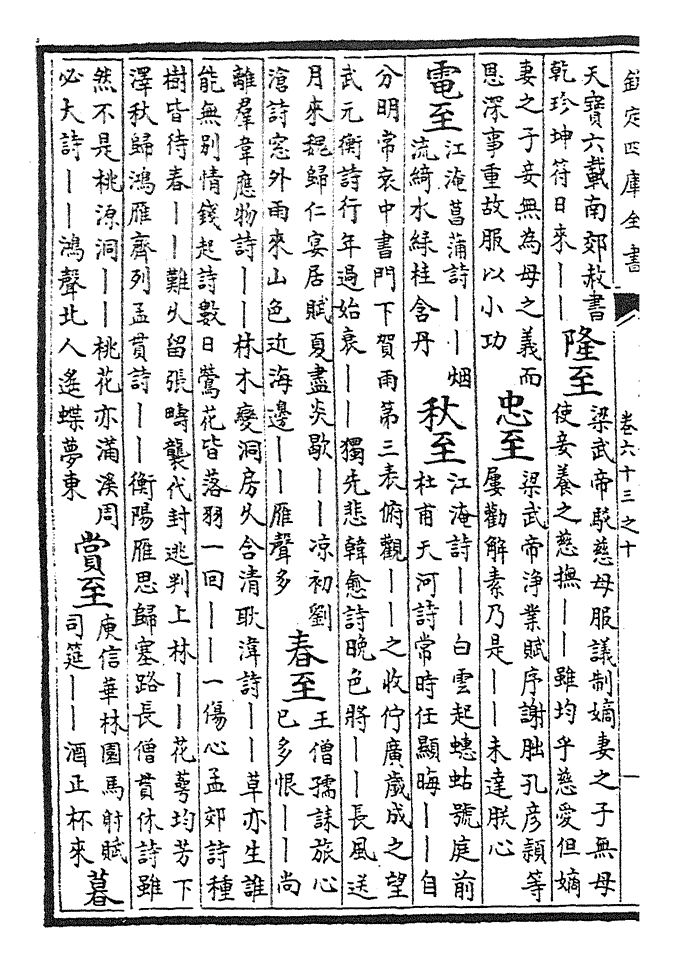 欽定四庫全書 卷六十三之十 一
天寶六載南郊赦書
乾珍坤符日來｜｜
隆至
梁武帝駁慈母服議制嫡妻之子無母
使妾養之慈撫｜｜雖均乎慈愛但嫡
妻之子妾無為母之義而
恩深事重故服以小功
忠至
梁武帝浄業賦序謝朏孔彦頴等
屢勸解素乃是｜｜未達朕心
電至
江淹菖蒲詩｜｜烟
流綺水綠桂含丹
秋至
江淹詩｜｜白雲起蟪蛄號庭前
杜甫天河詩常時任顯晦｜｜自
分明常衮中書門下賀雨第三表俯觀｜｜之收佇廣歲成之望
武元衡詩行年過始衰｜｜獨先悲韓愈詩晚色將｜｜長風送
月來魏歸仁宴居賦夏盡炎歇｜｜凉初劉
滄詩窓外雨來山色近海邊｜｜雁聲多
春至
王僧孺誄旅心
已多恨｜｜尚
離羣韋應物詩｜｜林木變洞房夂含清耿湋詩｜｜草亦生誰
能無别情錢起詩數日鶯花皆落羽一回｜｜一傷心孟郊詩種
樹皆待春｜｜難久留張疇襲代封逃判上林｜｜花蕚均芳下
澤秋歸鴻雁齊列孟貫詩｜｜衡陽雁思歸塞路長僧貫休詩雖
然不是桃源洞｜｜桃花亦滿溪周
必大詩｜｜鴻聲北人遙蝶夢東
賞至
庾信華林園馬射賦
司筵｜｜酒正杯來
暮